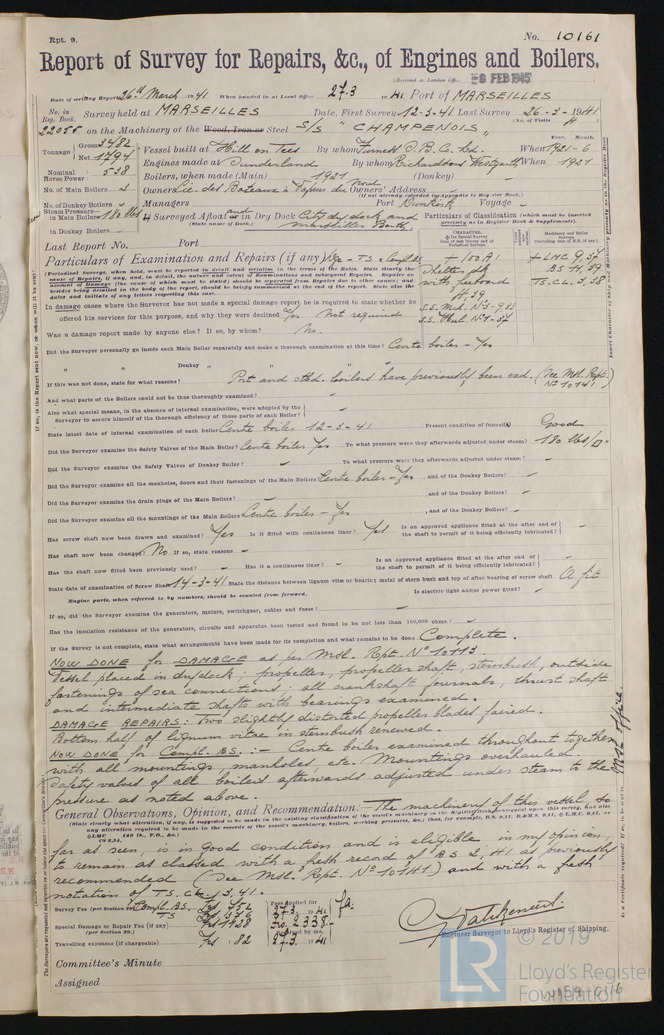 Rpt. 9.
No. 10161
Report of Survey for Repairs, &c., of Engines and Boilers.
(Received at London Office FEB 1945
Date of writing Report 26th March 1941 When handed in at Local Office 27.3 1941 Port of MARSEILLES
No. in Reg. Book. Survey held at MARSEILLES Date, First Survey 12-3-41 Last Survey 26-3-1941
(No. of Visits 4)
22055 on the Machinery of the Wood, Iron or Steel S/S "CHAMPENOIS"
Tonnage Gross 3482 Net 1794
Vessel built at Hill on Tees By whom Furness S.B.C. Ltd. When 1921-6
Year. Month.
Engines made at Sunderland By whom Richardsons Westgarth When 1921
Nominal Horse Power 538
Boilers, when made (Main) 1921 (Donkey)
No. of Main Boilers 3
Owners des Bateaux à Vapeur du Nord Owners' Address
(If not already recorded in Appendix to Register Book.)
No. of Donkey Boilers
Managers Port Dunkirk Voyage
Steam Pressure in Main Boilers 180 lbs
in Donkey Boilers
If Surveyed Afloat and or in Dry Dock City dry dock and
(State name of Dock.) Marseilles
Particulars of Classification (which must be inserted precisely as in Register Book & Supplement).
Last Report No. Port
Particulars of Examination and Repairs (if any) Dge - TS & Compl. BS
+ 100 A1
Shelter dk
with freeboard
4,39
S.S. Mch. No 3-9,33
S.S. Hul. No 1-37
+ LMC 9.37
BS 4,39
TS.CL. 3,38
(Periodical Surveys, when held, must be reported in detail and seriatim in the terms of the Rules. State clearly the cause of Repairs, if any, and, in detail, the nature and extent of Examinations and subsequent Repairs. Repairs on account of Damage (the cause of which must be stated) should be separated from Repairs due to other causes; and besides being detailed in the body of the report, should be briefly summarized at the end of the report. State also the dates and initials of any letters respecting this case.
In damage cases where the Surveyor has not made a special damage report he is required to state whether he
offered his services for this purpose, and why they were declined Yes Not required
Was a damage report made by anyone else? If so, by whom? No.
Did the Surveyor personally go inside each Main Boiler separately and make a thorough examination at this time? Centre boiler - Yes
" " Donkey " "
If this was not done, state for what reasons? Port and stbd. boilers have previously been exd. (See Msl. Rept. No 10141)
And what parts of the Boilers could not be thus thoroughly examined?
Also what special means, in the absence of internal examination, were adopted by the
Surveyor to assure himself of the thorough efficiency of those parts of each Boiler?
State latest date of internal examination of each boiler Centre boiler 12-3-41 Present condition of funnel(s) Good
Did the Surveyor examine the Safety Valves of the Main Boiler? Centre boiler Yes To what pressure were they afterwards adjusted under steam? 180 lbs/□"
Did the Surveyor examine the Safety Valves of Donkey Boiler? To what pressure were they afterwards adjusted under steam?
Did the Surveyor examine all the manholes, doors and their fastenings of the Main Boilers Centre boiler - Yes , and of the Donkey Boilers?
Did the Surveyor examine the drain plugs of the Main Boilers? , and of the Donkey Boilers?
Did the Surveyor examine all the mountings of the Main Boilers Centre boiler - Yes , and of the Donkey Boilers?
Has screw shaft now been drawn and examined? Yes Is it fitted with continuous liner? Yes Is an approved appliance fitted at the after end of the shaft to permit of it being efficiently lubricated?
Has shaft now been changed? No If so, state reasons
Has the shaft now fitted been previously used? Has it a continuous liner? Is an approved appliance fitted at the after end of the shaft to permit of it being efficiently lubricated?
State date of examination of Screw Shaft 14-3-41 State the distance between lignum vitæ or bearing metal of stern bush and top of after bearing of screw shaft A fit
Engine parts, when referred to by numbers, should be counted from forward. Is electric light and/or power fitted?
If so, did the Surveyor examine the generators, motors, switchgear, cables and fuses?
Has the insulation resistance of the generators, circuits and apparatus been tested and found to be not less than 100,000 ohms?
If the Survey is not complete, state what arrangements have been made for its completion and what remains to be done Complete.
NOW DONE for DAMAGE as per Msl. Rpt. No 10113.
Vessel placed in drydock; propeller, propeller shaft, sternbush, outside
fastenings of sea connections, all crankshaft journals, thrust shaft
and intermediate shafts with bearings examined.
DAMAGE REPAIRS: Two slightly distorted propeller blades faired.
Bottom half of lignum vitae in sternbush renewed.
NOW DONE for Compl. B.S. :- Centre boiler examined throughout together
with all mountings, manholes etc. Mountings overhauled.
Safety valves of all boilers afterwards adjusted under steam to the
pressure as noted above.
General Observations, Opinion, and Recommendation:— The machinery of this vessel, so
far as seen, is in good condition and is eligible in my opinion,
to remain as classed with a fresh record of BS 2,41 as previously
recommended (See Msl. Rept. No 10141) and with a fresh
notation of TS. CL. 3,41.
Survey Fee (per Section Compl. BS. TS
Fees applied for
27.3 1941
Special Damage or Repair Fee (if any) (per Section 29.) Frs 1928
Frs. 2338
Received by me,
Travelling expenses (if chargeable) Frs. 82 27.3 1941
Engineer Surveyor to Lloyd's Register of Shipping.
Committee's Minute
Assigned
LR
© 2019
Lloyd's Register
Foundation